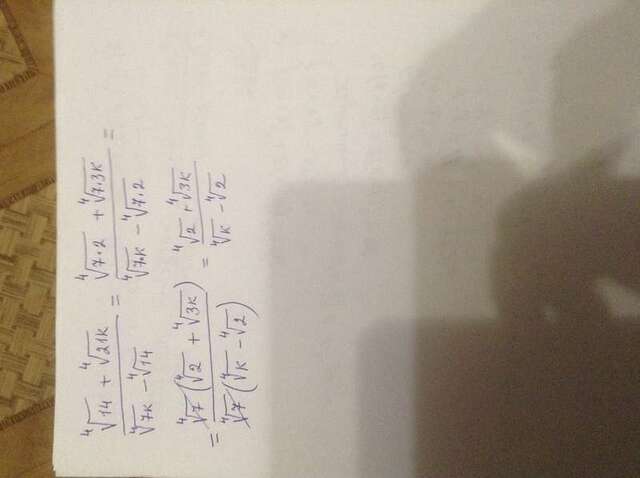 (⁴√14 + ⁴√21к) / (⁴√7к − ⁴√14) = (⁴√7·2 + ⁴√7·3к) / (⁴√7·к − ⁴√7·2) =
= ⁴√7 (⁴√2 + ⁴√3к) / ⁴√7 (⁴√к − ⁴√2) = (⁴√2 + ⁴√3к) / (⁴√к − ⁴√2)